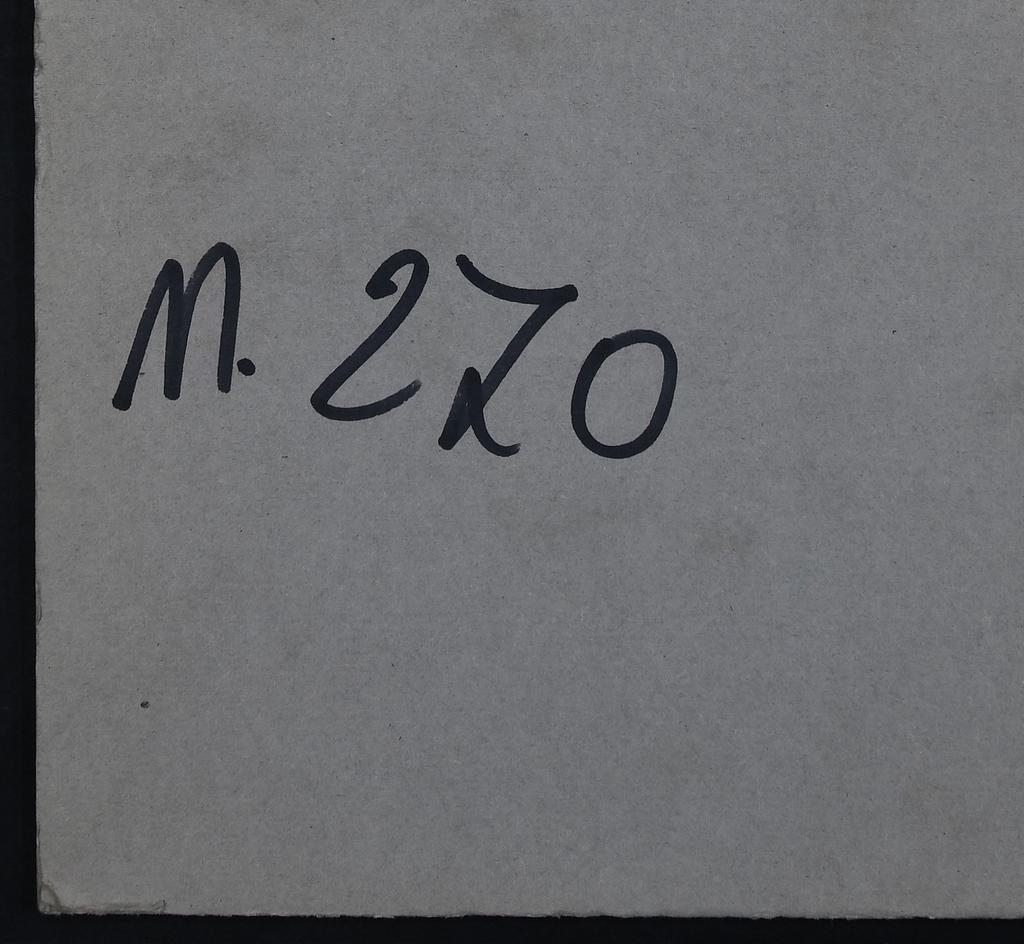 M. 270